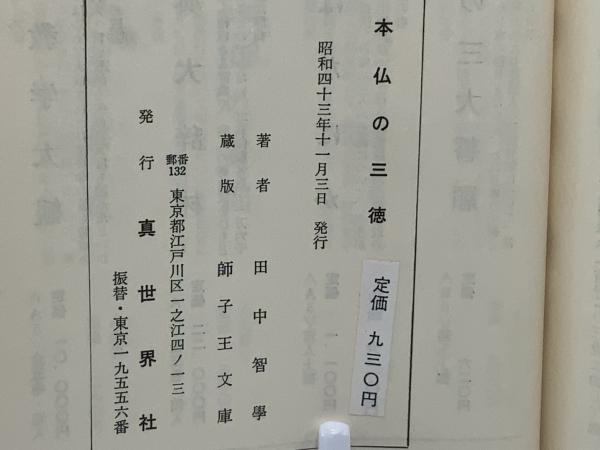 本仏の三徳
定価 九三〇円
昭和四十三年十一月三日 発行
著者 田中智學
蔵版 師子王文庫
郵番132 東京都江戸川区一之江四ノ一三
発行 真世界社
振替・東京一九五五六番